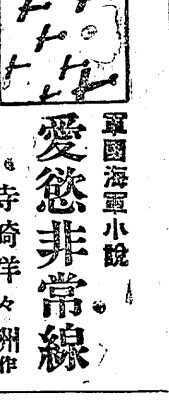 軍國海軍小說
愛慾非常線
寺崎洋々州作